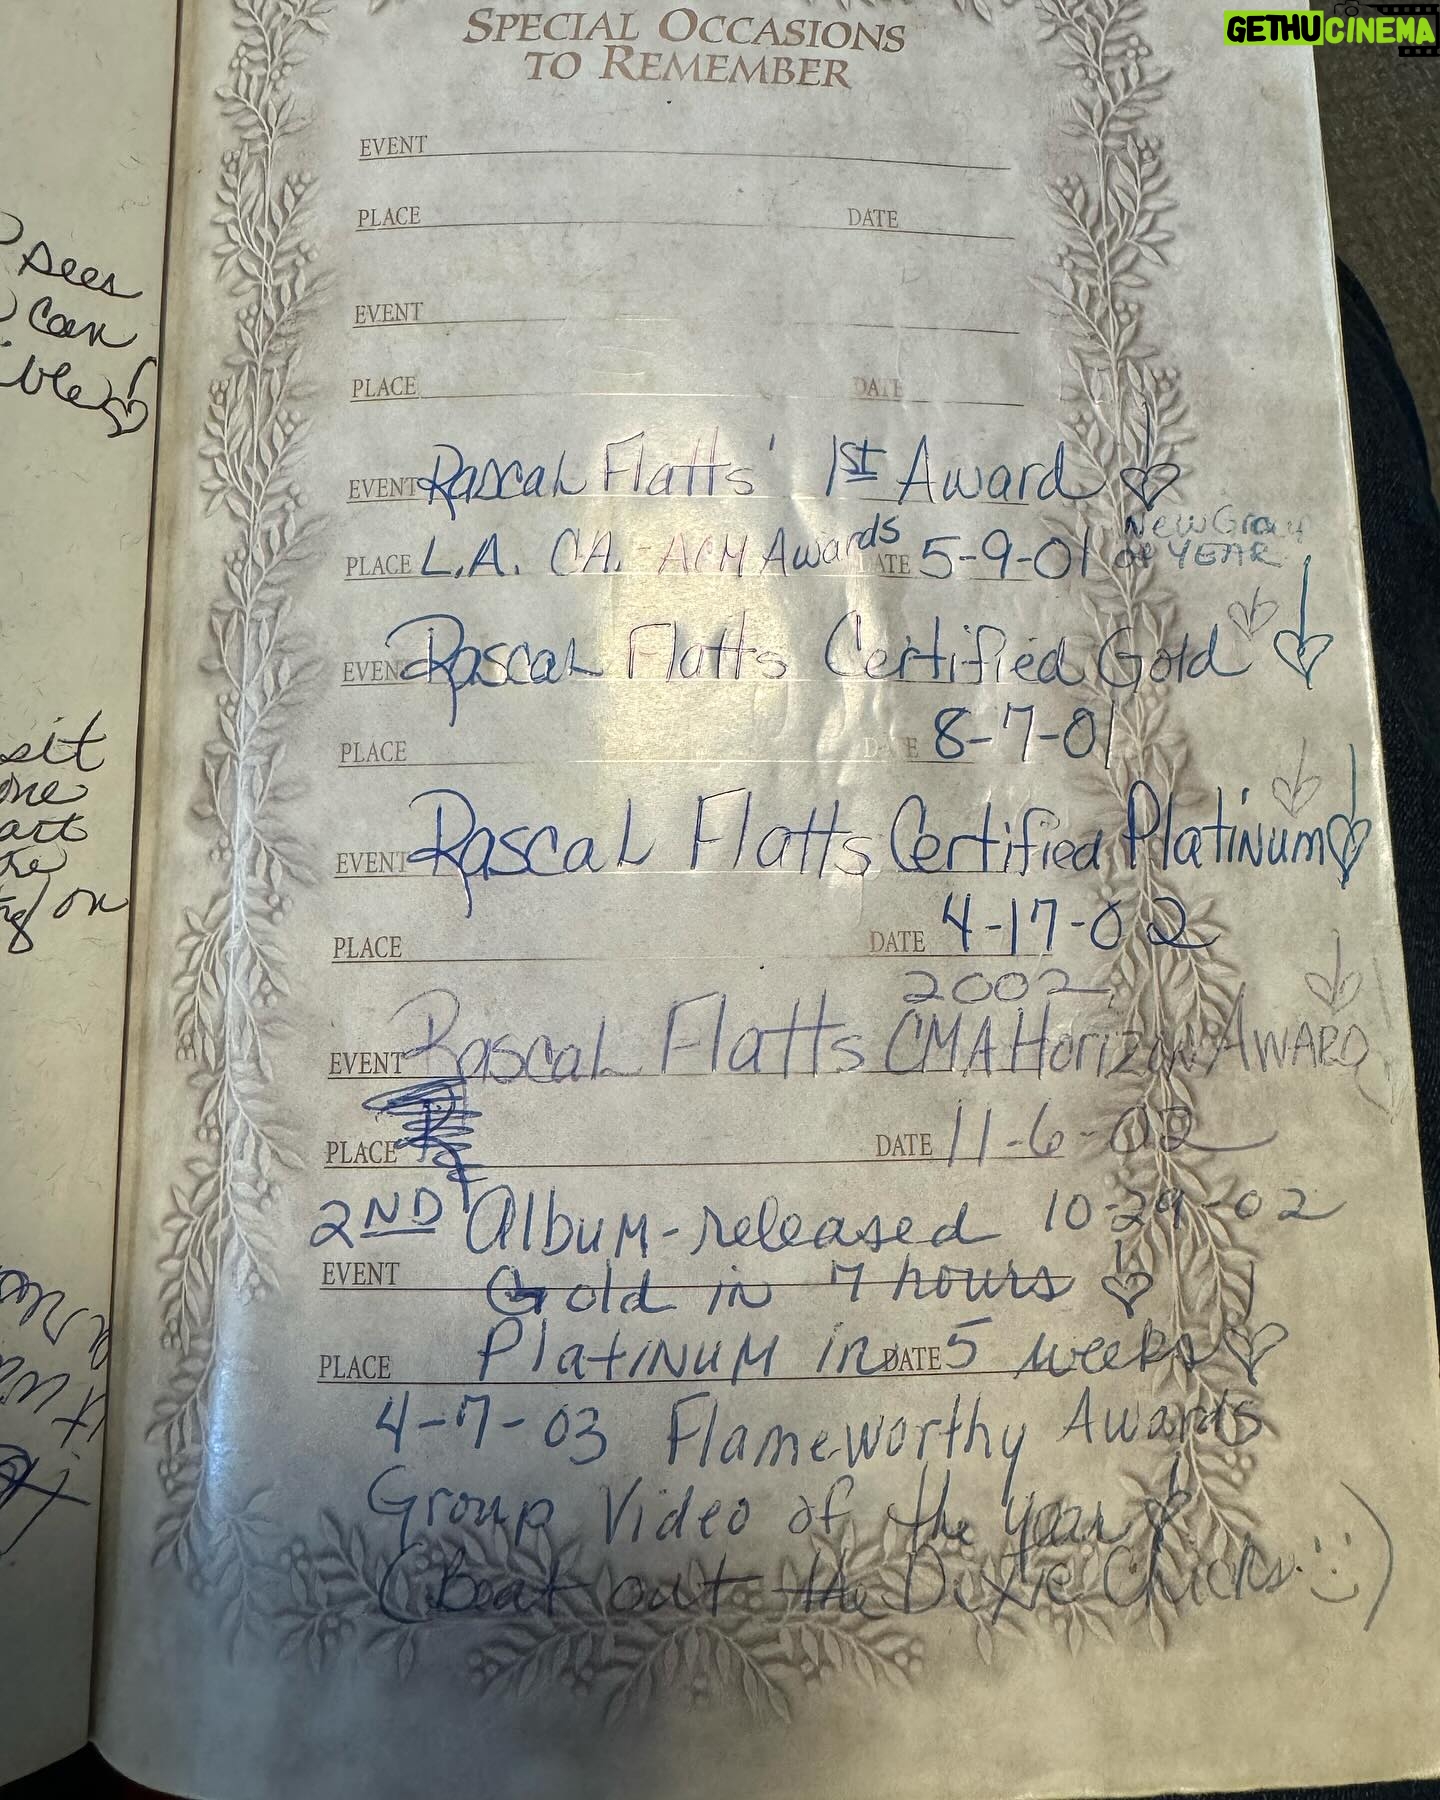 GETHUCINEMA
SPECIAL OCCASIONS
TO REMEMBER
EVENT
PLACE DATE
EVENT
PLACE DATE
EVENT Rascal Flatts' 1st Award
New Group
of YEAR
PLACE L.A. CA. - ACM Awards DATE 5-9-01
EVENT Rascal Flatts Certified Gold
PLACE DATE 8-7-01
EVENT Rascal Flatts Certified Platinum
PLACE DATE 4-17-02
2002
EVENT Rascal Flatts CMA Horizon AWARD
PLACE DATE 11-6-02
2ND Album-released 10-29-02
EVENT Gold in 7 hours
PLACE Platinum in DATE 5 weeks
4-7-03 Flameworthy Awards
Group Video of the year
(Beat out the Dixie Chicks :)
sees
can
sit
on